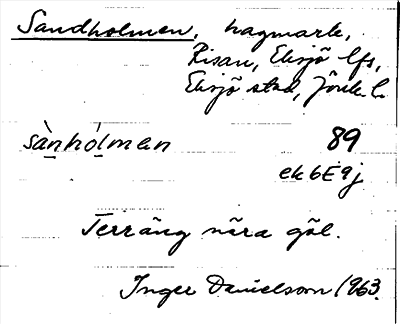 Sandholmen, hagmark,
Risan, Eksjö lfs,
Eksjö stad, Jönk. l.
sànhólmen 89
ek 6E9j
Terräng nära göl.
Inger Danielsson 1963.